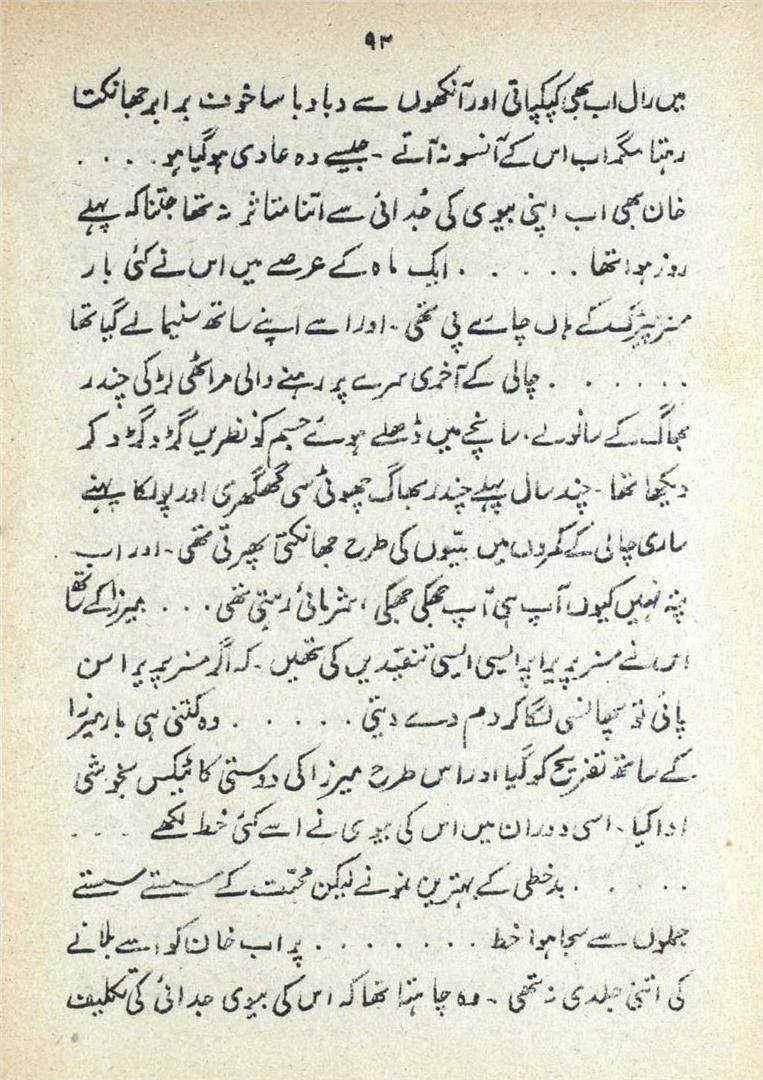 ۹۳
میں رال اب بھی کپکپاتی اور آنکھوں سے دبا دبا سا خون برابر جھانکتا
رہتا مگر اب اس کے آنسو نہ آتے - جیسے وہ عادی ہو گیا ہو . . . .
خان بھی اب اپنی بیوی کی جُدائی سے اتنا متاثر نہ تھا جتنا کہ پہلے
روز ہوا تھا . . . . . . ایک ماہ کے عرصے میں اس نے کئی بار
مسز پیڑک کے ہاں چائے پی تھی - اور اسے اپنے ساتھ سنیما لے گیا تھا
. . . . . . چالی کے آخری سرے پر رہنے والی مراٹھی لڑکی چندر
بھاگ کے سانولے، سانچے میں ڈھلے ہوئے جسم کو نظریں گڑو گڑو کر
دیکھا تھا - چند سال پہلے چندر بھاگ چھوٹی سی گھگھری اور پولکا پہنے
ساری چالی کے کمروں میں بلیوں کی طرح جھانکتی پھرتی تھی - اور اب
پتہ نہیں کیوں آپ ہی آپ جھکی جھکی ، شرمائی رہتی تھی . . . میرزا کے ساتھ
اس نے مسز پر ایسی ایسی تنقیدیں کی تھیں - کہ اگر مسز سن
پاتی تو پھانسی لگا کر دم دے دیتی . . . . . وہ کتنی ہی بار میرزا
کے ساتھ تفریح کو گیا اور اس طرح میرزا کی دوستی کا ٹیکس بخوشی
ادا کیا - اسی دوران میں اس کی بیوی نے اسے کئی خط لکھے . . .
. . . . . بدخطی کے بہترین نمونے لیکن محبّت کے سستے سستے
جملوں سے سجا ہوا خط . . . . . . . پر اب خان کو اسے بلانے
کی اتنی جلدی نہ تھی - وہ چاہتا تھا کہ اس کی بیوی جدائی کی تکلیف